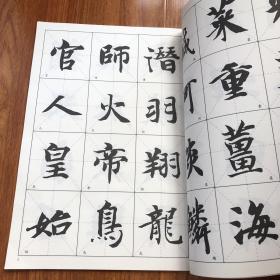 菜重薑海
潛羽翔龍
師火帝鳥
官人皇始